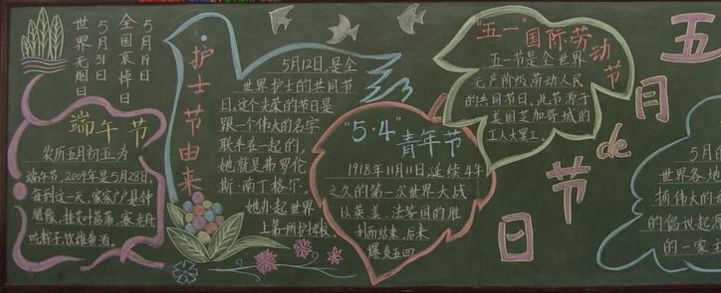 5月19日
全国哀悼日
5月31日
世界无烟日
端午节
农历五月初五为
端午节,2009年是5月28日.
每到这一天,家家户户悬钟
馗像、挂艾叶菖蒲、赛龙舟
吃粽子、饮雄黄酒。
护士节由来
5月12日,是全
世界护士的共同节
日.这个光荣的节日是
跟一个伟大的名字
联系在一起的,
她就是弗罗伦
斯·南丁格尔.
她办起世界
上第一所护士学校
"5·4"青年节
1918年11月11日,延续4年
之久的第一次世界大战
以英、美、法等国的胜
利而结束,后来
爆发五四
"五一"国际劳动节
五一节是全世界
无产阶级劳动人民
的共同节日,此节源于
美国芝加哥城的
工人大罢工.
五月de节日
5月的
世界各地
扬伟大的
的倡议起
的一家